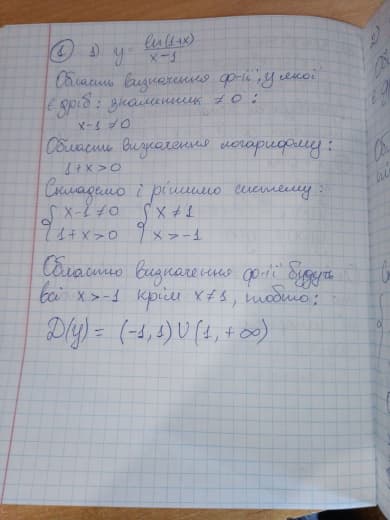 ① 1) y = ln(1+x)/(x-1)
Область визначення ф-ії, у якої
є дріб: знаменник ≠ 0:
x-1 ≠ 0
Область визначення логарифму:
1+x > 0
Складемо і рішимо систему:
{ x-1 ≠ 0 { x ≠ 1
{ 1+x > 0 { x > -1
Областю визначення ф-ії будуть
всі x > -1 крім x ≠ 1, тобто:
D(y) = (-1, 1) U (1, +∞)